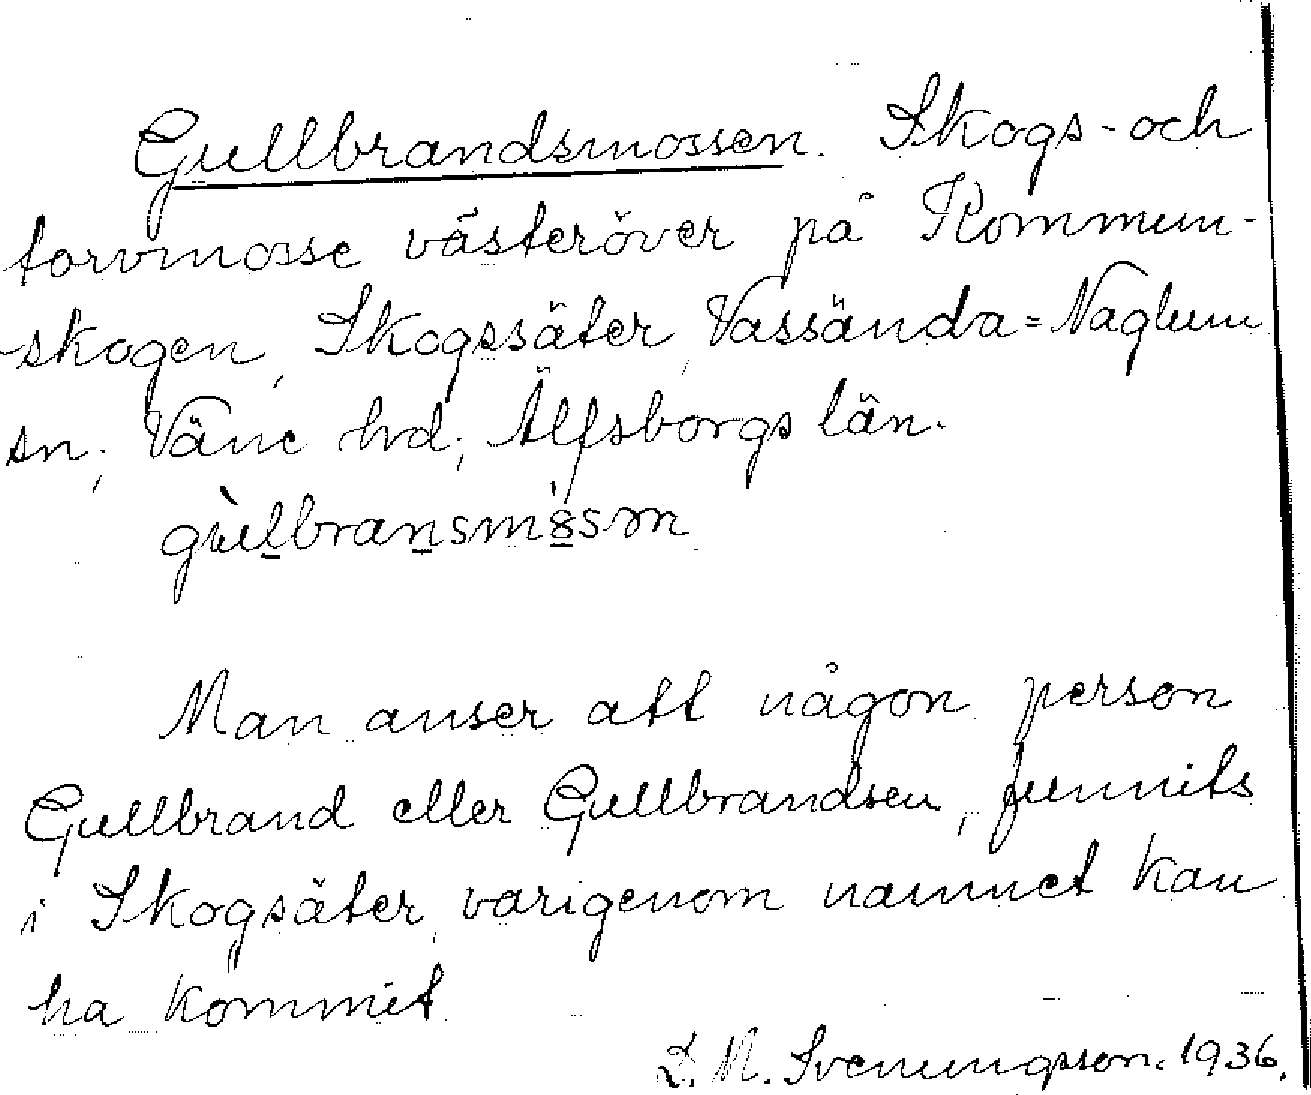 Gullbrandsmossen. Skogs- och
torvmosse västeröver på Kommun-
skogen, Skogssäter, Vassända=Naglum
sn, Väne hd, Älfsborgs län.
Man anser att någon person
Gullbrand eller Gullbrandsen, funnits
i Skogsäter, varigenom namnet kan
ha kommit.
M. Svenungsson. 1936.